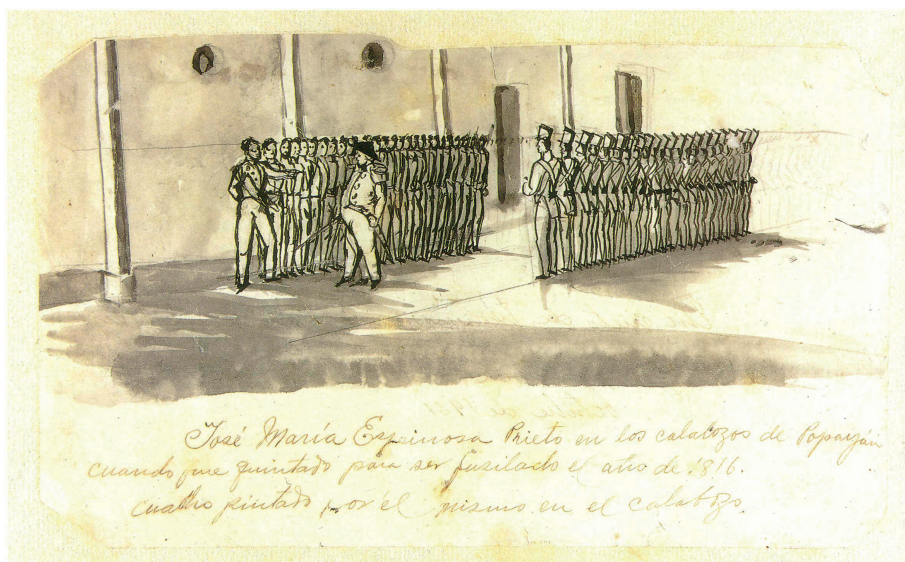 José María Espinosa Prieto en los calabozos de Popayán
cuando fue quintado para ser fusilado el año de 1816.
cuadro pintado por el mismo en el calabozo